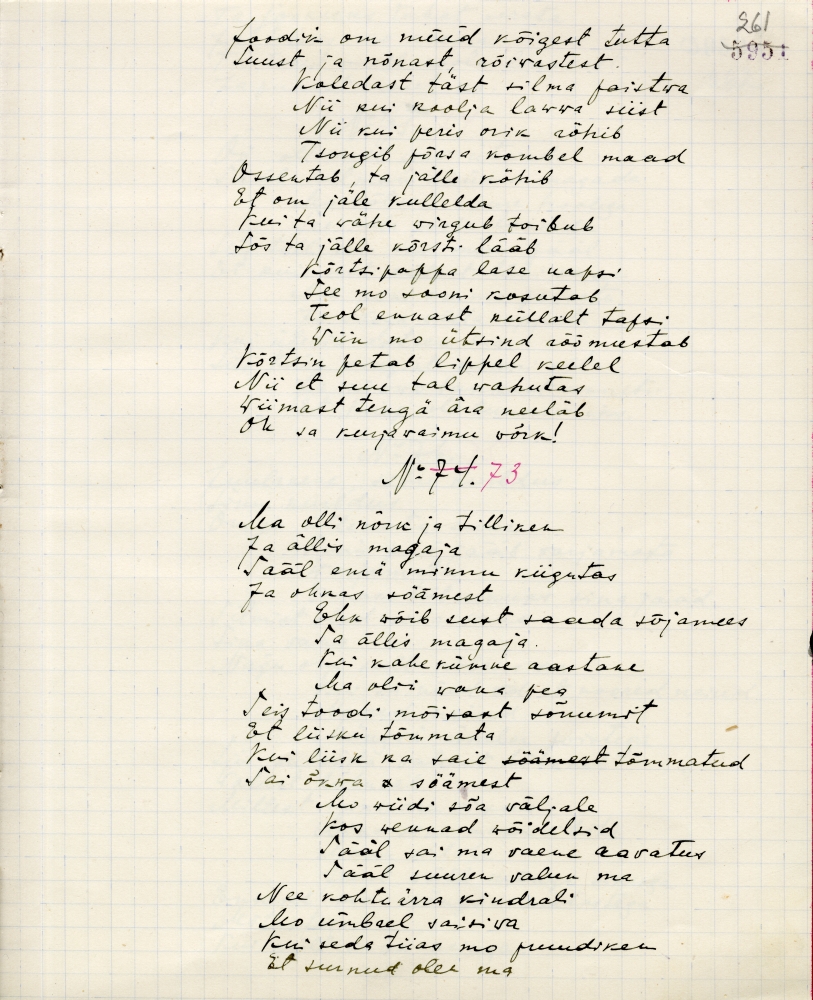 261
5951
foodik om nüüd kõigest tutta
Suust ja nõnast, rõiwastest
Koledast täst silma paistwa
Nii kui koolja lawwa siist
Nii kui peris orik röhib
Tsongib põrsa kombel maad
Ossentab, ta jälle köhib
Et om jäle kullelda
Kui ta wähe wirgub toibub
Sõs ta jälle kõrsti lääb
Kõrtsipappa lase napsi
See mo sooni kosutab
Teol ennast nüllalt tapsi
Wiin mo ütsind rõõmustab
Kõrtsin petab lippel keelel
Nii et suu tal wahutas
Wiimast tengä ära neeläb
Oh sa kurjawaimu wõrk!
No 74. 73
Ma olli nõrk ja tilliken
Ja ällis magaja
Sääl emä minnu kiigutas
Ja ohkas söämest
Ehk wõib sest saada sõjamees
Sa ällis magaja.
Kui kahekümne aastane
Ma olli wana pea
Seis toodi mõisast sõnumit
Et liisku tõmmata
Kui liisk ka saie söämest tõmmatud
Sai õkwa söämest
Mo wiidi sõa väljale
Kos wennad wõidelsid
Sääl sai ma vaene aavatus
Sääl suuren valun ma
Nee kohtuärra kindrali
Mo ümbrel saisiva
Kui seda tiias mo pruudiken
Et surnud olen ma